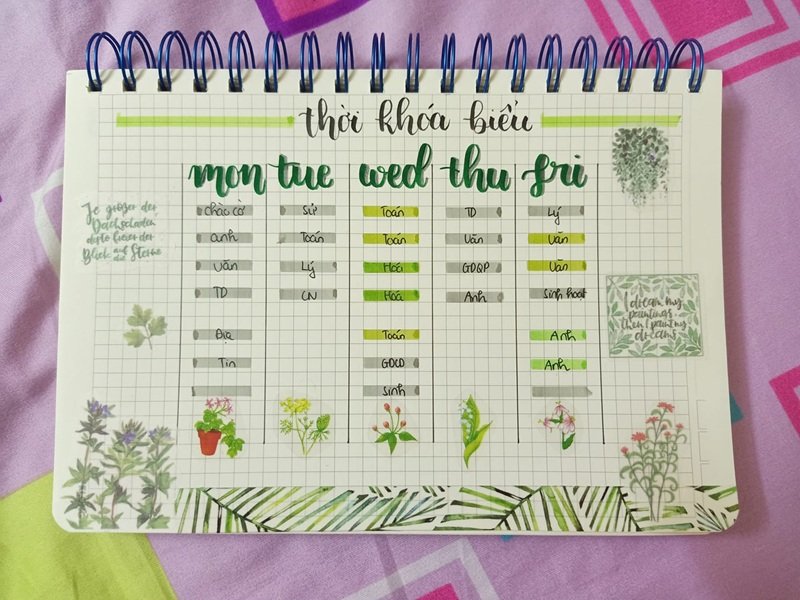 thời khóa biểu
mon tue wed thu fri
chào cờ Sử Toán TD Lý
anh Toán Toán Văn Văn
Văn Lý Hoá GDQP Văn
TD CN Hoá Anh Sinh hoạt
Địa Toán Anh
Tin GDCD Anh
Sinh
Je größer der
Dachschaden
desto besser der
Blick auf
die Sterne
I dream my
paintings,
then I paint my
dreams